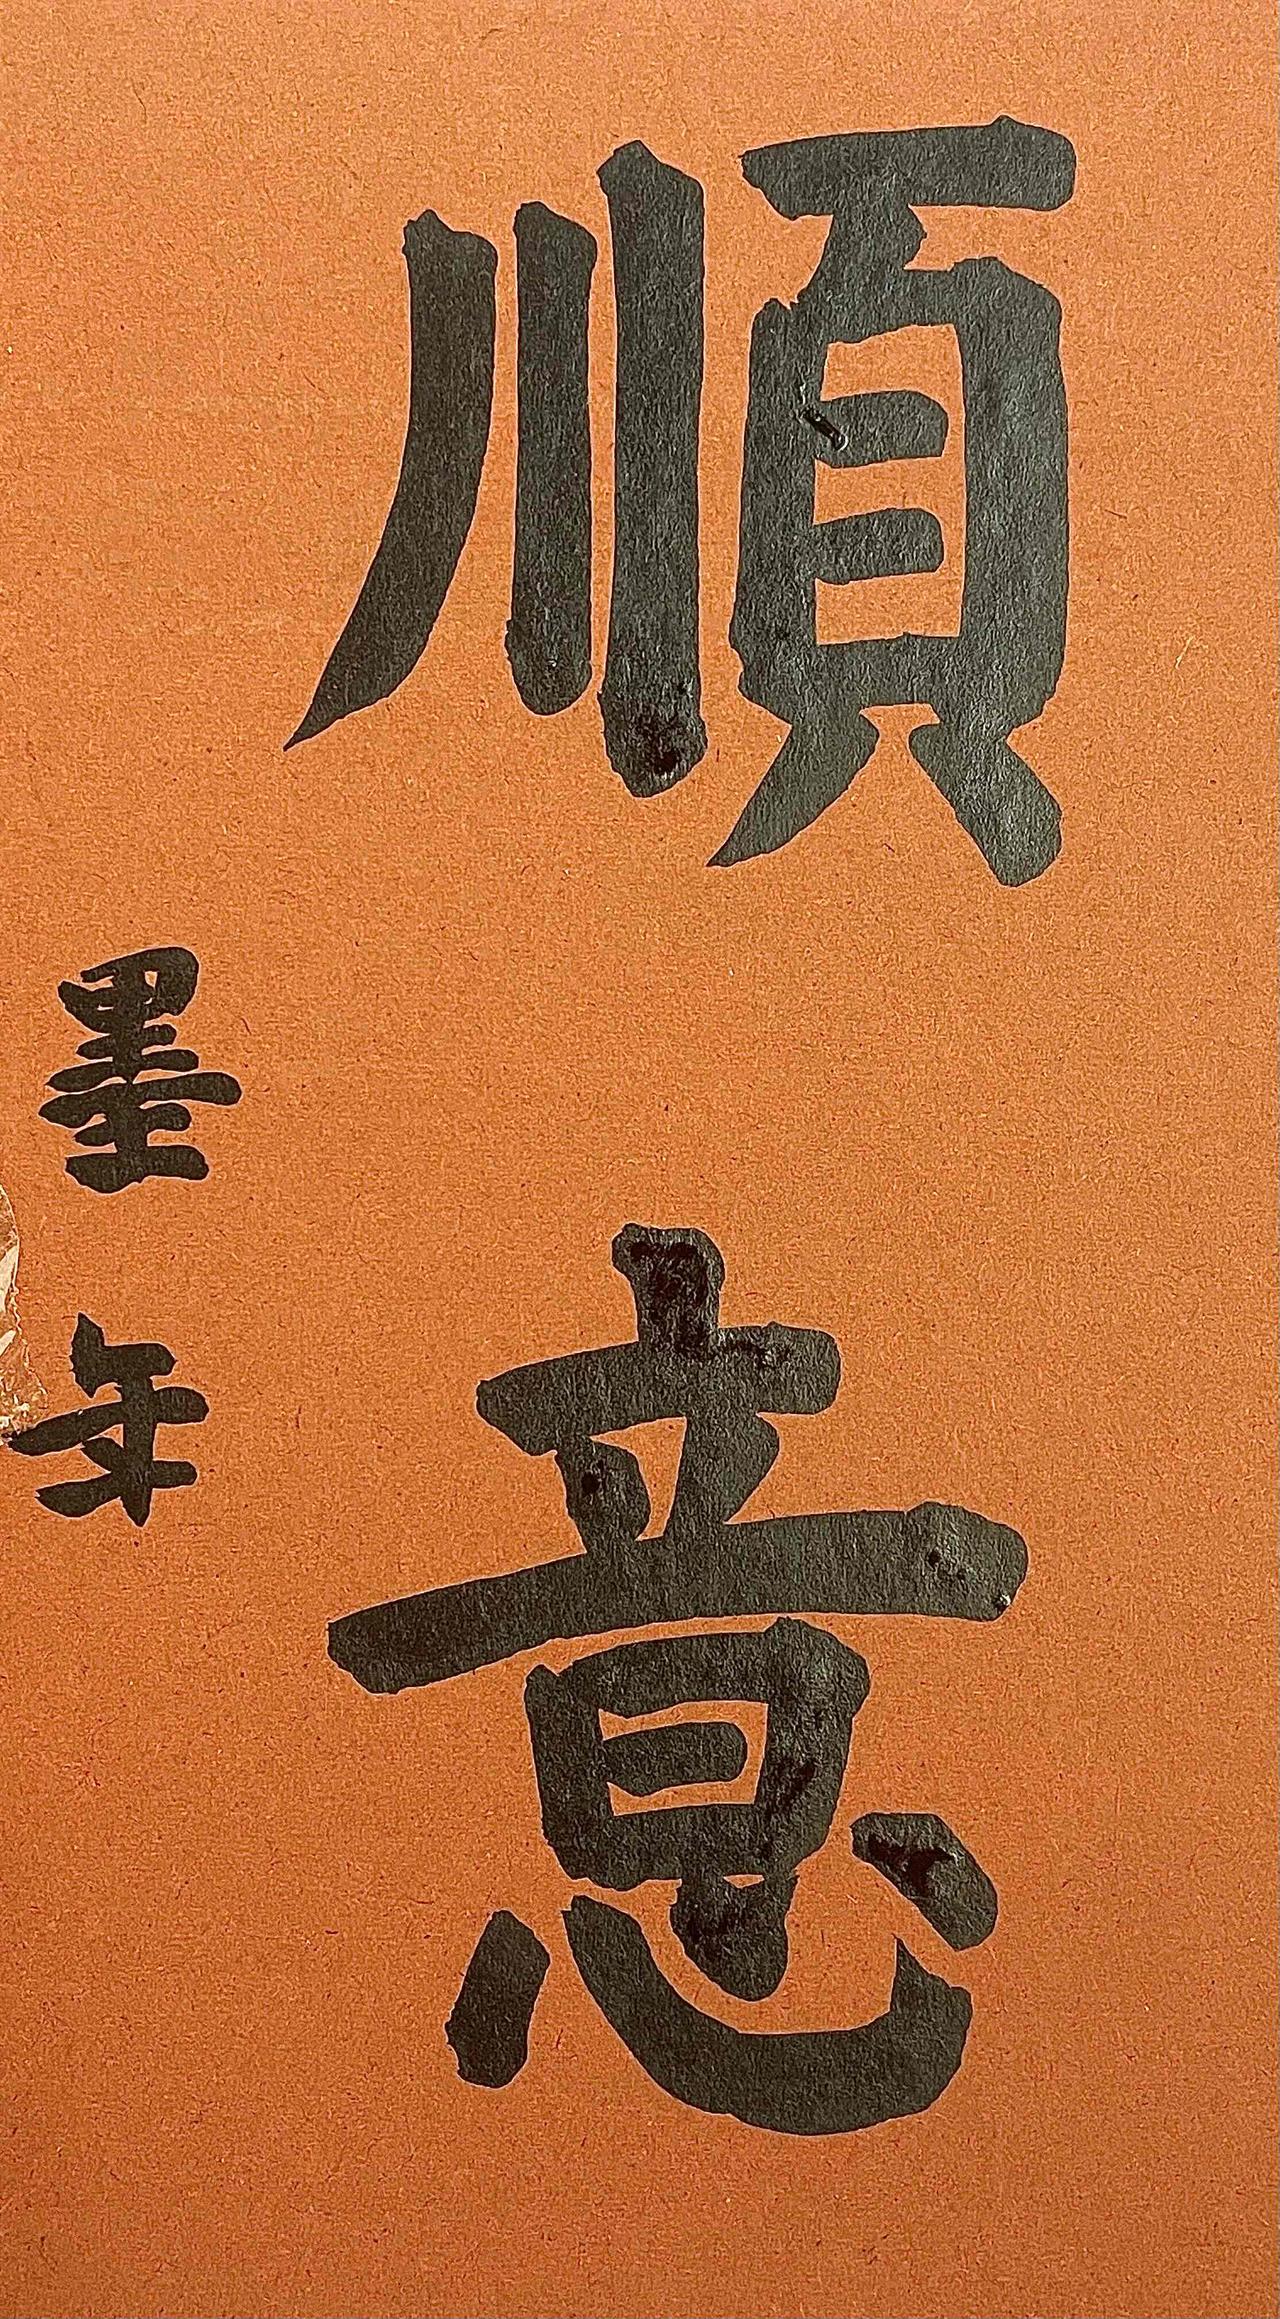 順意
墨年